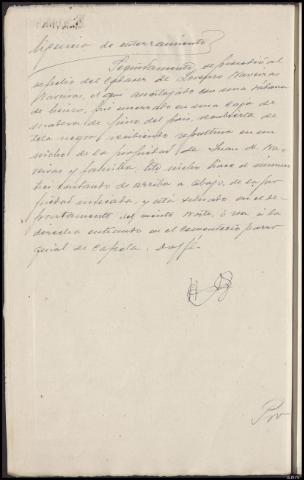 Diligencia de enterramiento
Seguidamente, se procedió al
sepelio del cadaver de Severo Naveiras
Naveiras, el que amortajado con una sábana
de lienzo, fué encerrado en una caja de
madera de pino del país, cubierta de
tela negra, recibiendo sepultura en un
nicho de la propiedad de Juan M. Na-
veiras y familia. Este nicho hace el número
tres contando de arriba a abajo, de la pro-
piedad indicada, y está situado en el de-
partamento del viento Norte, ó sea á la
derecha entrando en el cementerio parro-
quial de Capela. Doy fé.
Pro